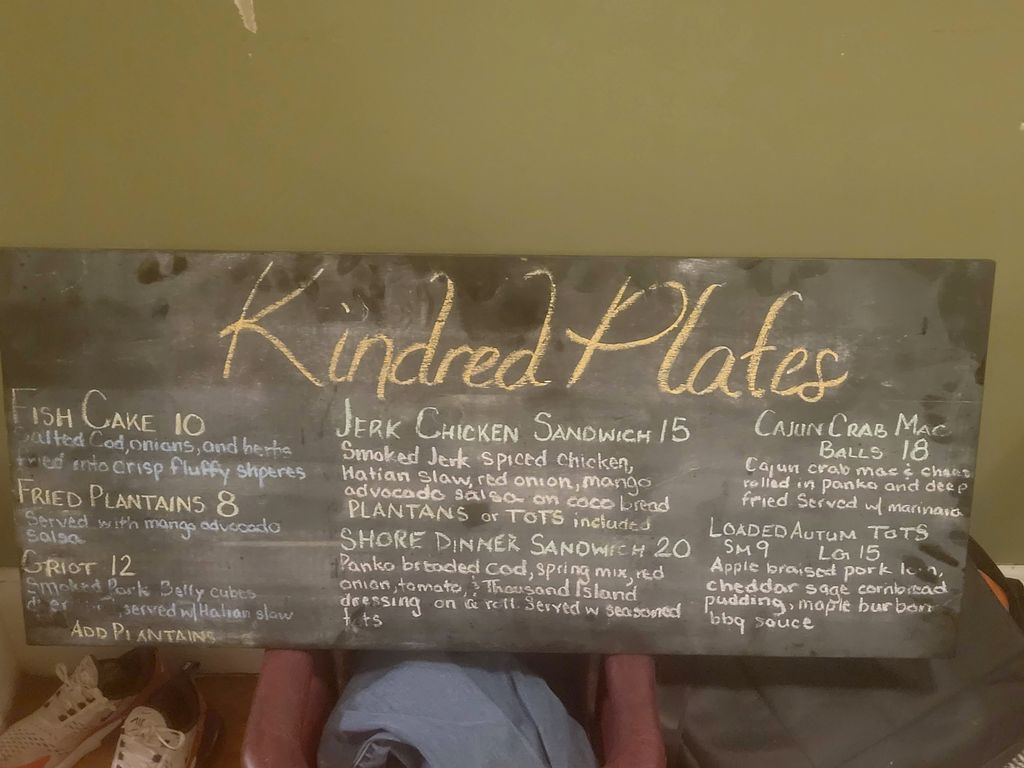 Kindred Plates
FISH CAKE 10
Salted Cod, onians, and herbs
fried into crisp fluffy shperes
FRIED PLANTAINS 8
Served with mango advocado
Salsa
GRIOT 12
Smoked Pork Belly cubes
served w/ Hatian slaw
ADD PLANTAINS
JERK CHICKEN SANDWICH 15
Smoked Jerk spiced chicken,
Hatian slaw, red onion, mango
advocado salsa on coco bread
PLANTANS or TOTS included
SHORE DINNER SANDWICH 20
Panko breaded cod, spring mix, red
onion, tomato, & Thousand Island
dressing on a roll Served w seasoned
tots
CAJUN CRAB MAC
BALLS 18
Cajun crab mac & chees
rolled in panko and deep
fried Served w/ marinara
LOADED AUTUM TOTS
SM 9 LG 15
Apple braised pork loin,
cheddar sage cornbread
pudding, maple burbon
bbq sauce